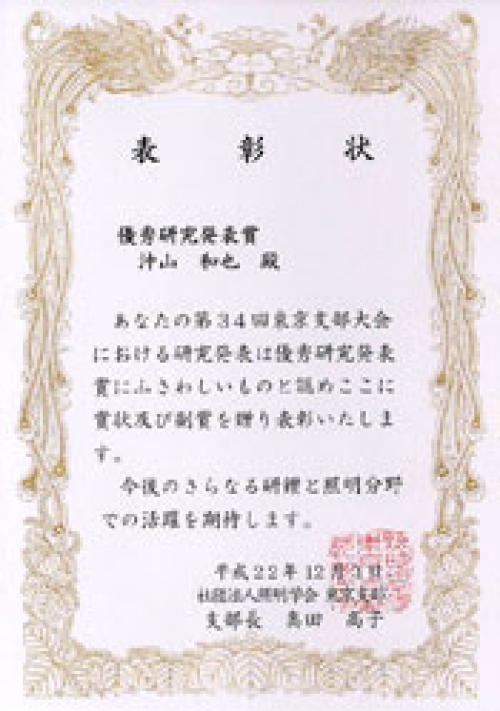 表彰状
優秀研究発表賞
沖山 和也 殿
あなたの第34回東京支部大会
における研究発表は優秀研究発表
賞にふさわしいものと認めここに
賞状及び副賞を贈り表彰いたしま
す。
今後のさらなる研鑽と照明分野
での活躍を期待します。
平成22年12月 日
社団法人照明学会 東京支部
支部長 田 子